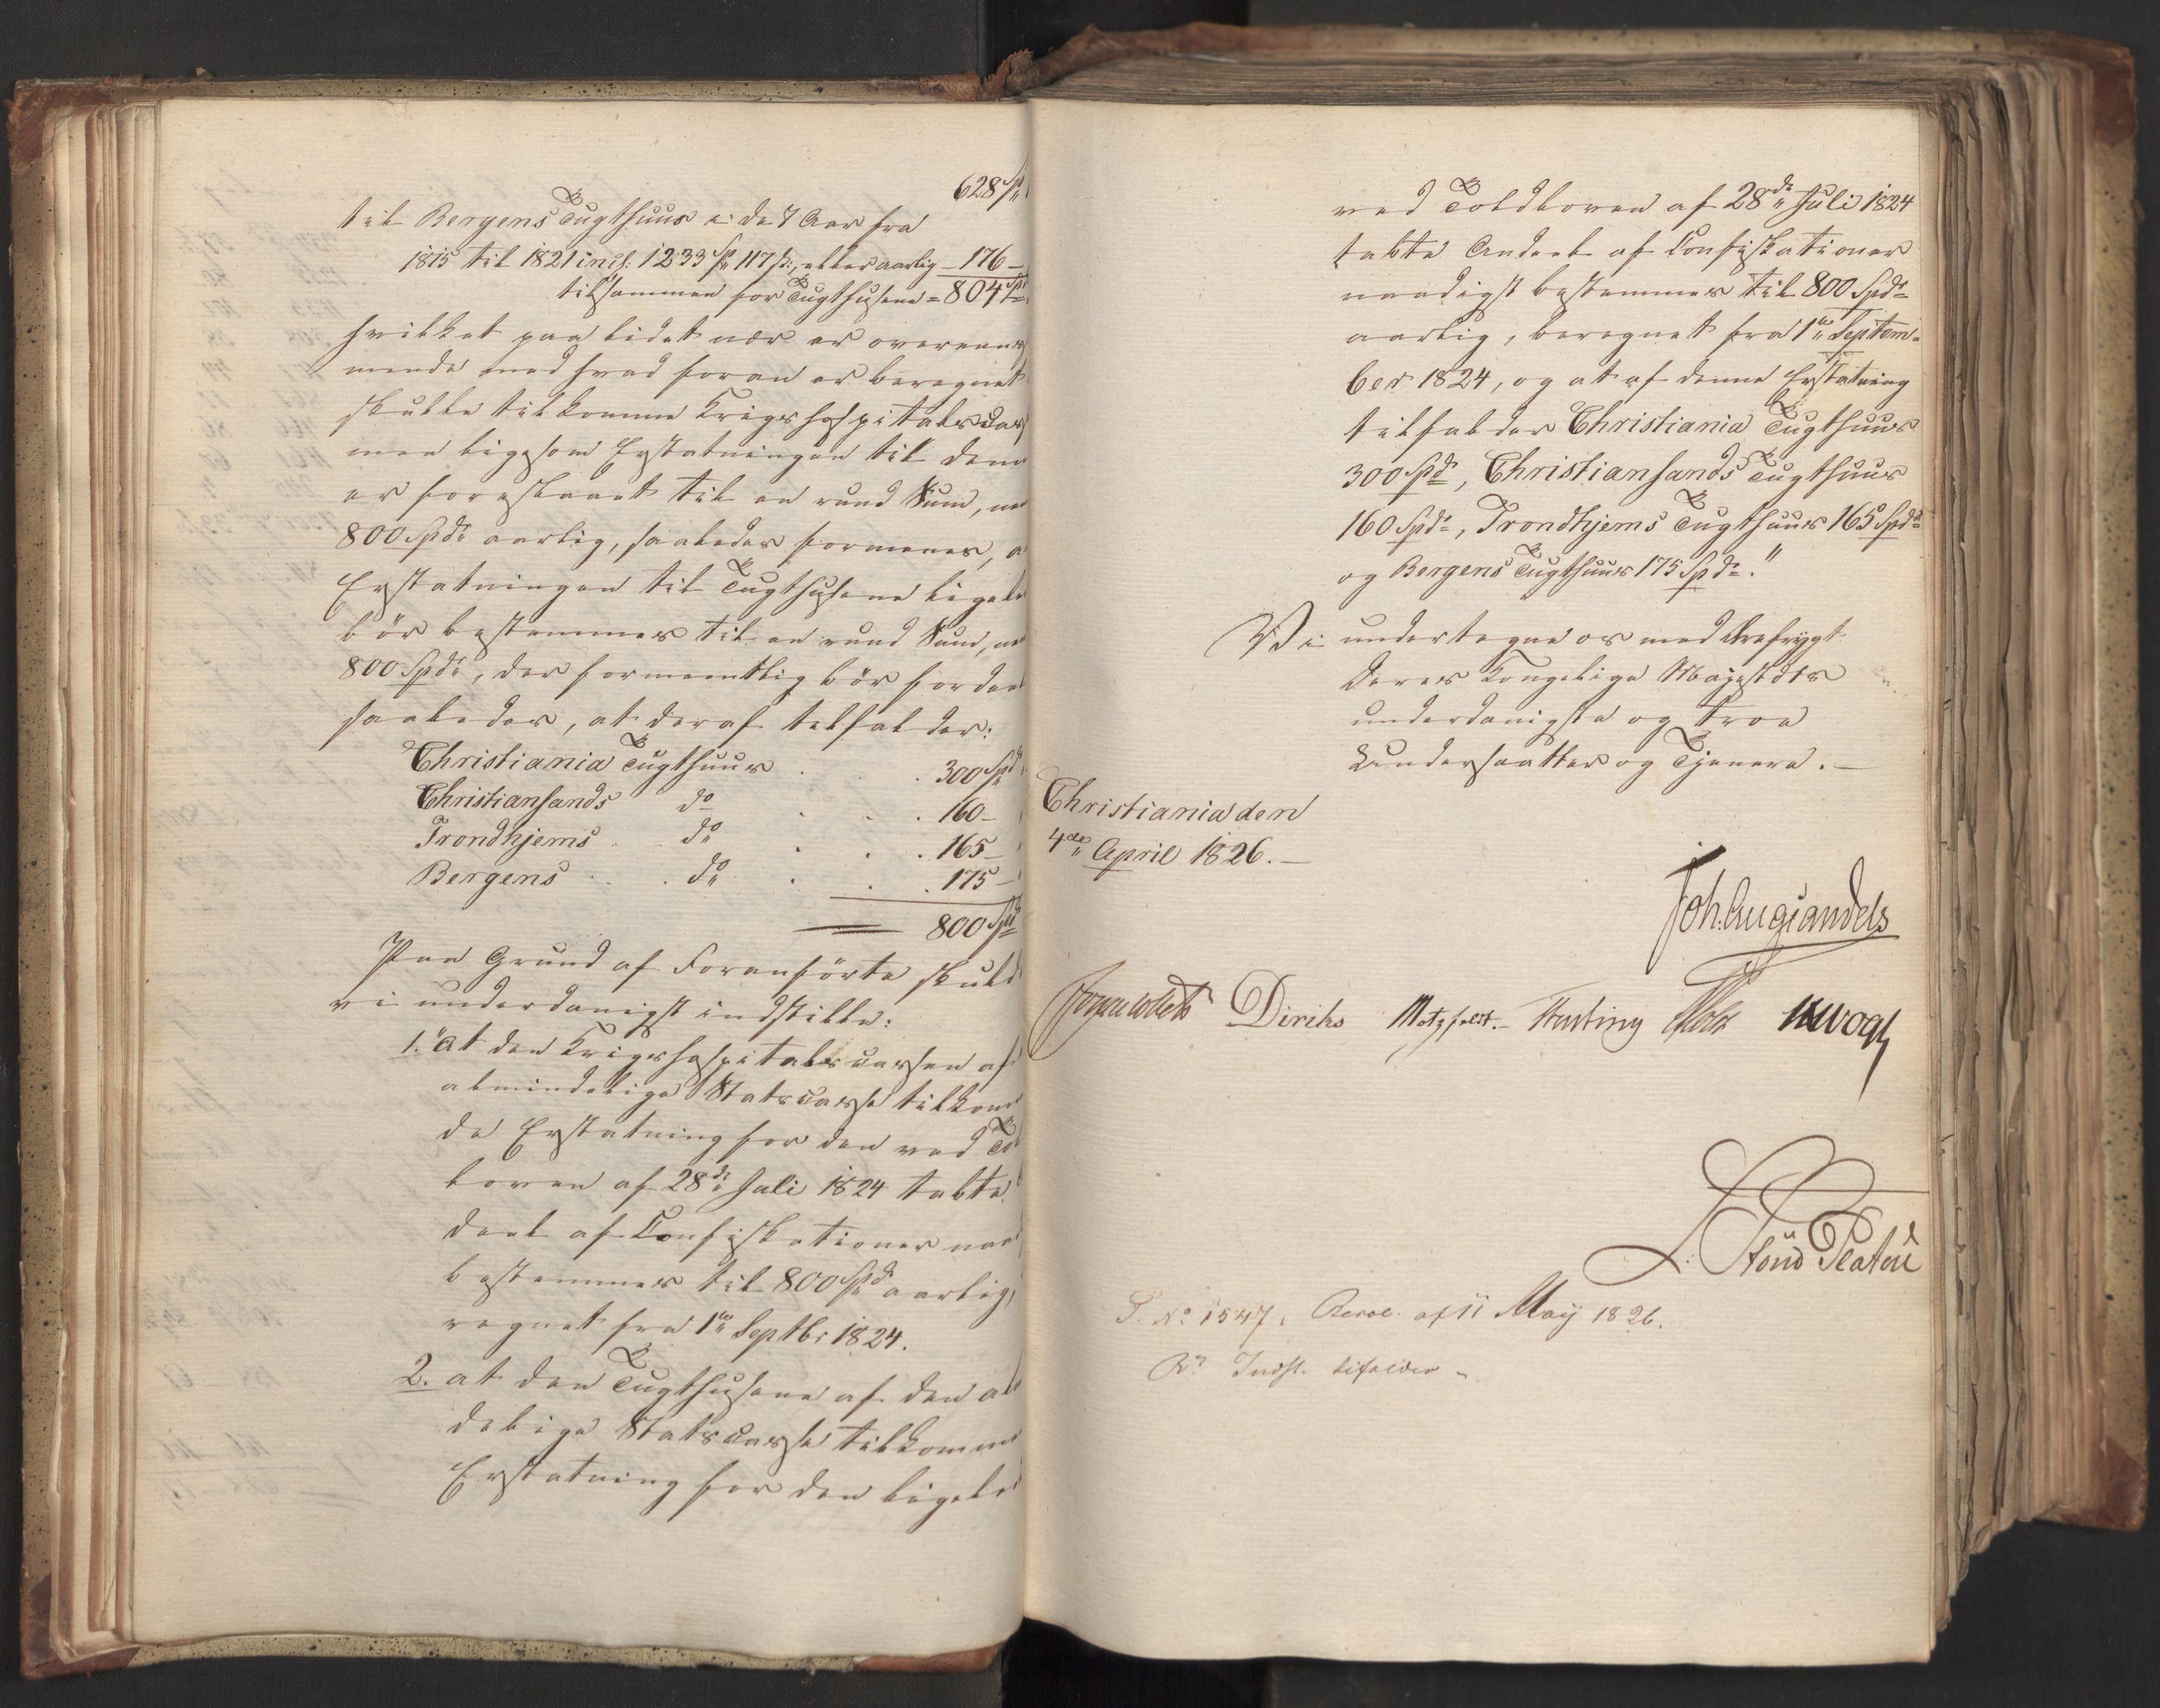 628 Spd
til Bergens Tugthuus i de 7 Aar fra
1815 til 1821 incl: 1233 Spd 117 ß:, eller aarlig – 176 –
tilsammen for Tugthusene = 804 Spd
hvilket paa lidet nær er overeens
mende med hvad foran er beregnet
skulle tilkomme Krigshospitalscas
men ligesom Erstatningen til denn
er foreslaaet til en rund Sum, ne
800 Spdr aarlig, saaledes formenes, a
Erstatningen til Tugthusene ligele
bör bestemmes til en rund Sum, ne
800 Spdr, der formeentlig bör fordee
saaledes, at deraf tilfalder:
Christiania Tugthuus . . 300 Spd
Christiansands do . . . 160 –
Trondhjems do . . . 165 –
Bergens . . do . . . 175 –
800 Spd
Paa Grund af Foranförte skuld
vi underdanigst indstille:
1. "at den Krigshospitalscassen af
almindelige Statscasse tilkom
de Erstatning for den ved To
loven af 28de Juli 1824 tabte
deel af Confiskationer naa
bestemmes til 800 Spd aarlig,
regnet fra 1ste Septbr 1824.
2. at den Tugthusene af den al
delige Statscasse tilkomme
Erstatning for den ligele
ved Toldloven af 28de Juli 1824
tabte Andeel af Confiskationer
naadigst bestemmes til 800 Spdr
aarlig, beregnet fra 1ste Septem-
ber 1824, og at af denne Erstatning
tilfalder Christiania Tugthuus
300 Spd, Christiansands Tugthuus
160 Spdr, Trondhjems Tugthuus 165 Spdr
og Bergens Tugthuus 175 Spdr."
Vi undertegne os med Ærefrygt
Deres Kongelige Majestæts
underdanigste og troe
Undersaatter og Tjenere. –
Christiania den
4de April 1826. –
Joh. Aug: Sandels
Jonas Collett Diriks Motzfeldt. Fasting Holst JHVogt
L. Stoud Platou
P. No 1547. Resol. af 11 May 1826.
Rs Indst. bifaldes –